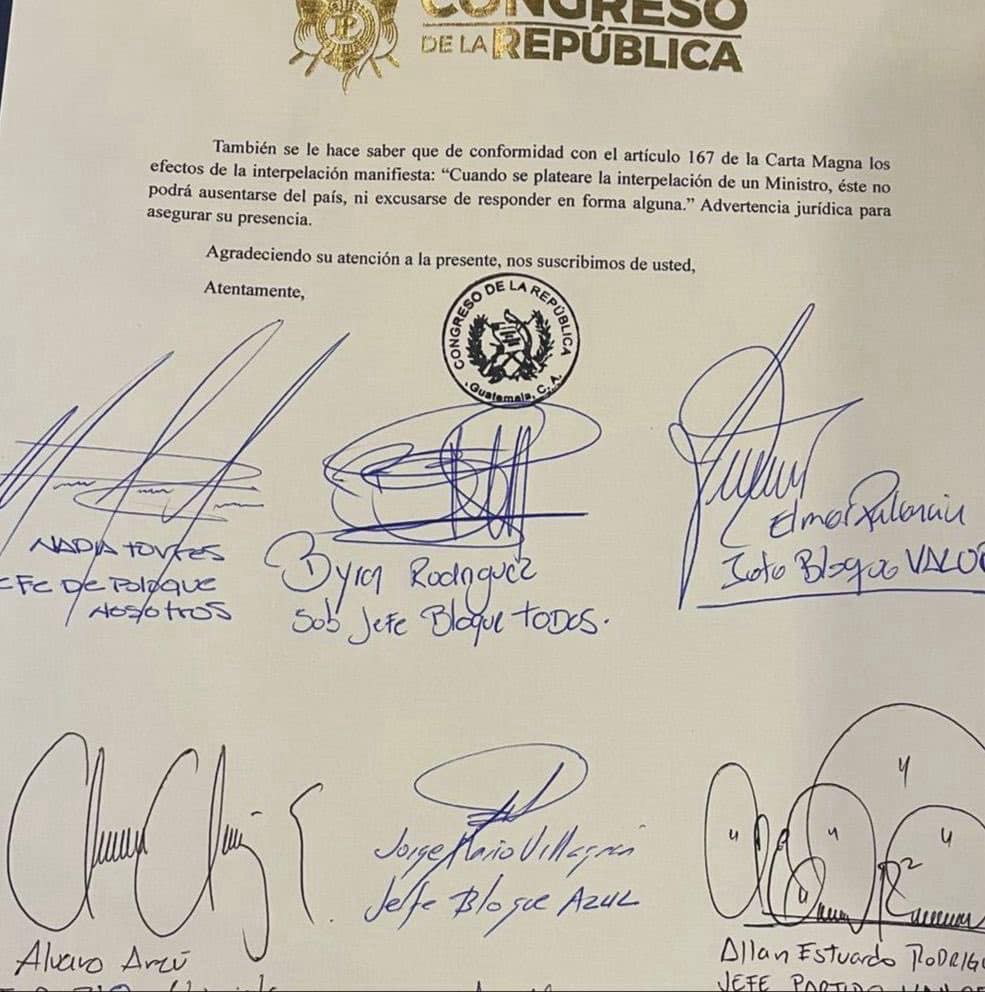 CONGRESO
DE LA REPÚBLICA
También se le hace saber que de conformidad con el artículo 167 de la Carta Magna los
efectos de la interpelación manifiesta: “Cuando se plateare la interpelación de un Ministro, éste no
podrá ausentarse del país, ni excusarse de responder en forma alguna.” Advertencia jurídica para
asegurar su presencia.
Agradeciendo su atención a la presente, nos suscribimos de usted,
Atentamente,
CONGRESO DE LA REPÚBLICA
Guatemala, C. A.
NADIA TORRES
EFE DE BLOQUE
NOSOTROS
Byron Rodríguez
Sob Jefe Bloque TODOS.
Elmer Palencia
Bloque VALOR
Jorge Mario Villagrán
Jefe Bloque AZUL
Alvaro Arzú
Allan Estuardo RODRIGU
JEFE PARTIDO